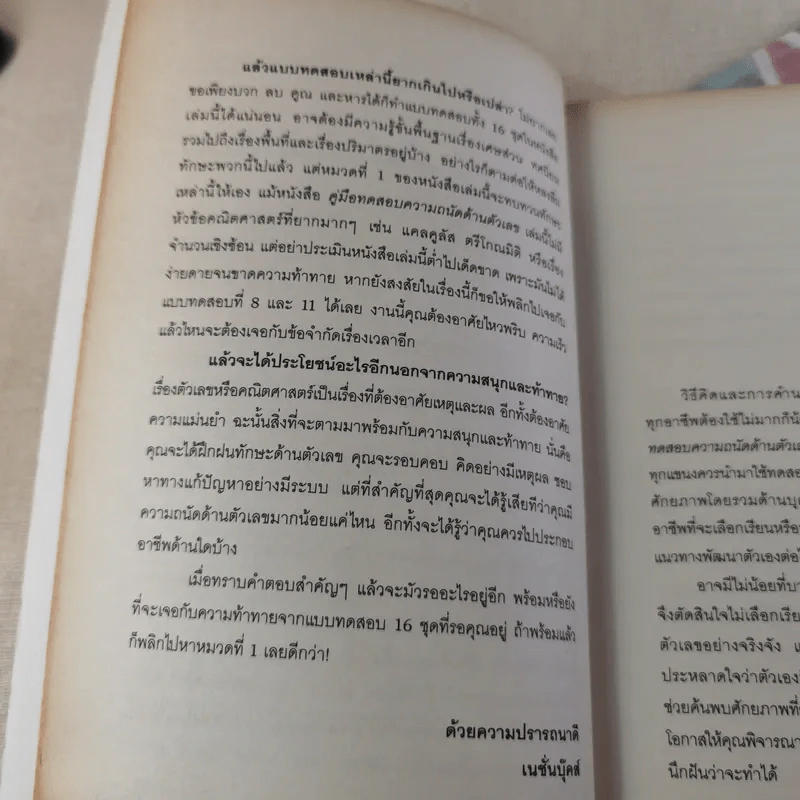 แล้วแบบทดสอบเหล่านี้ยากเกินไปหรือเปล่า?
ขอเพียงบวก ลบ คูณ และหารได้ก็ทำแบบทดสอบทั้ง 16 ชุดในหนังสือ
เล่มนี้ได้แน่นอน อาจต้องมีความรู้ขั้นพื้นฐานเรื่องเศษส่วน ทศนิยม
รวมไปถึงเรื่องพื้นที่และเรื่องปริมาตรอยู่บ้าง อย่างไรก็ตามต่อให้หลงลืม
ทักษะพวกนี้ไปแล้ว แต่หมวดที่ 1 ของหนังสือเล่มนี้จะทบทวนทักษะ
เหล่านี้ให้เอง แม้หนังสือ คู่มือทดสอบความถนัดด้านตัวเลข เล่มนี้ไม่มี
หัวข้อคณิตศาสตร์ที่ยากมากๆ เช่น แคลคูลัส ตรีโกณมิติ หรือเรื่อง
จำนวนเชิงซ้อน แต่อย่าประเมินหนังสือเล่มนี้ต่ำไปเด็ดขาด เพราะมันไม่ได้
ง่ายดายจนขาดความท้าทาย หากยังสงสัยในเรื่องนี้ก็ขอให้พลิกไปเจอกับ
แบบทดสอบที่ 8 และ 11 ได้เลย งานนี้คุณต้องอาศัยไหวพริบ ความเร็ว
แล้วไหนจะต้องเจอกับข้อจำกัดเรื่องเวลาอีก
แล้วจะได้ประโยชน์อะไรอีกนอกจากความสนุกและท้าทาย?
เรื่องตัวเลขหรือคณิตศาสตร์เป็นเรื่องที่ต้องอาศัยเหตุและผล อีกทั้งต้องอาศัย
ความแม่นยำ ฉะนั้นสิ่งที่จะตามมาพร้อมกับความสนุกและท้าทาย นั่นคือ
คุณจะได้ฝึกฝนทักษะด้านตัวเลข คุณจะรอบคอบ คิดอย่างมีเหตุผล ชอบ
หาทางแก้ปัญหาอย่างมีระบบ แต่ที่สำคัญที่สุดคุณจะได้รู้เสียทีว่าคุณมี
ความถนัดด้านตัวเลขมากน้อยแค่ไหน อีกทั้งจะได้รู้ว่าคุณควรไปประกอบ
อาชีพด้านใดบ้าง
เมื่อทราบคำตอบสำคัญๆ แล้วจะมัวรออะไรอยู่อีก พร้อมหรือยัง
ที่จะเจอกับความท้าทายจากแบบทดสอบ 16 ชุดที่รอคุณอยู่ ถ้าพร้อมแล้ว
ก็พลิกไปหาหมวดที่ 1 เลยดีกว่า!
ด้วยความปรารถนาดี
เนชั่นบุ๊คส์
วิธีคิดและการคำน
ทุกอาชีพต้องใช้ไม่มากก็น้
ทดสอบความถนัดด้านตัวเล
ทุกแขนงควรนำมาใช้ทดสอ
ศักยภาพโดยรวมด้านบุ
อาชีพที่จะเลือกเรียนหรือ
แนวทางพัฒนาตัวเองต่อไ
อาจมีไม่น้อยที่บา
จึงตัดสินใจไม่เลือกเรีย
ตัวเลขอย่างจริงจัง แ
ประหลาดใจว่าตัวเองมี
ช่วยค้นพบศักยภาพที่
โอกาสให้คุณพิจารณา
นึกฝันว่าจะทำได้